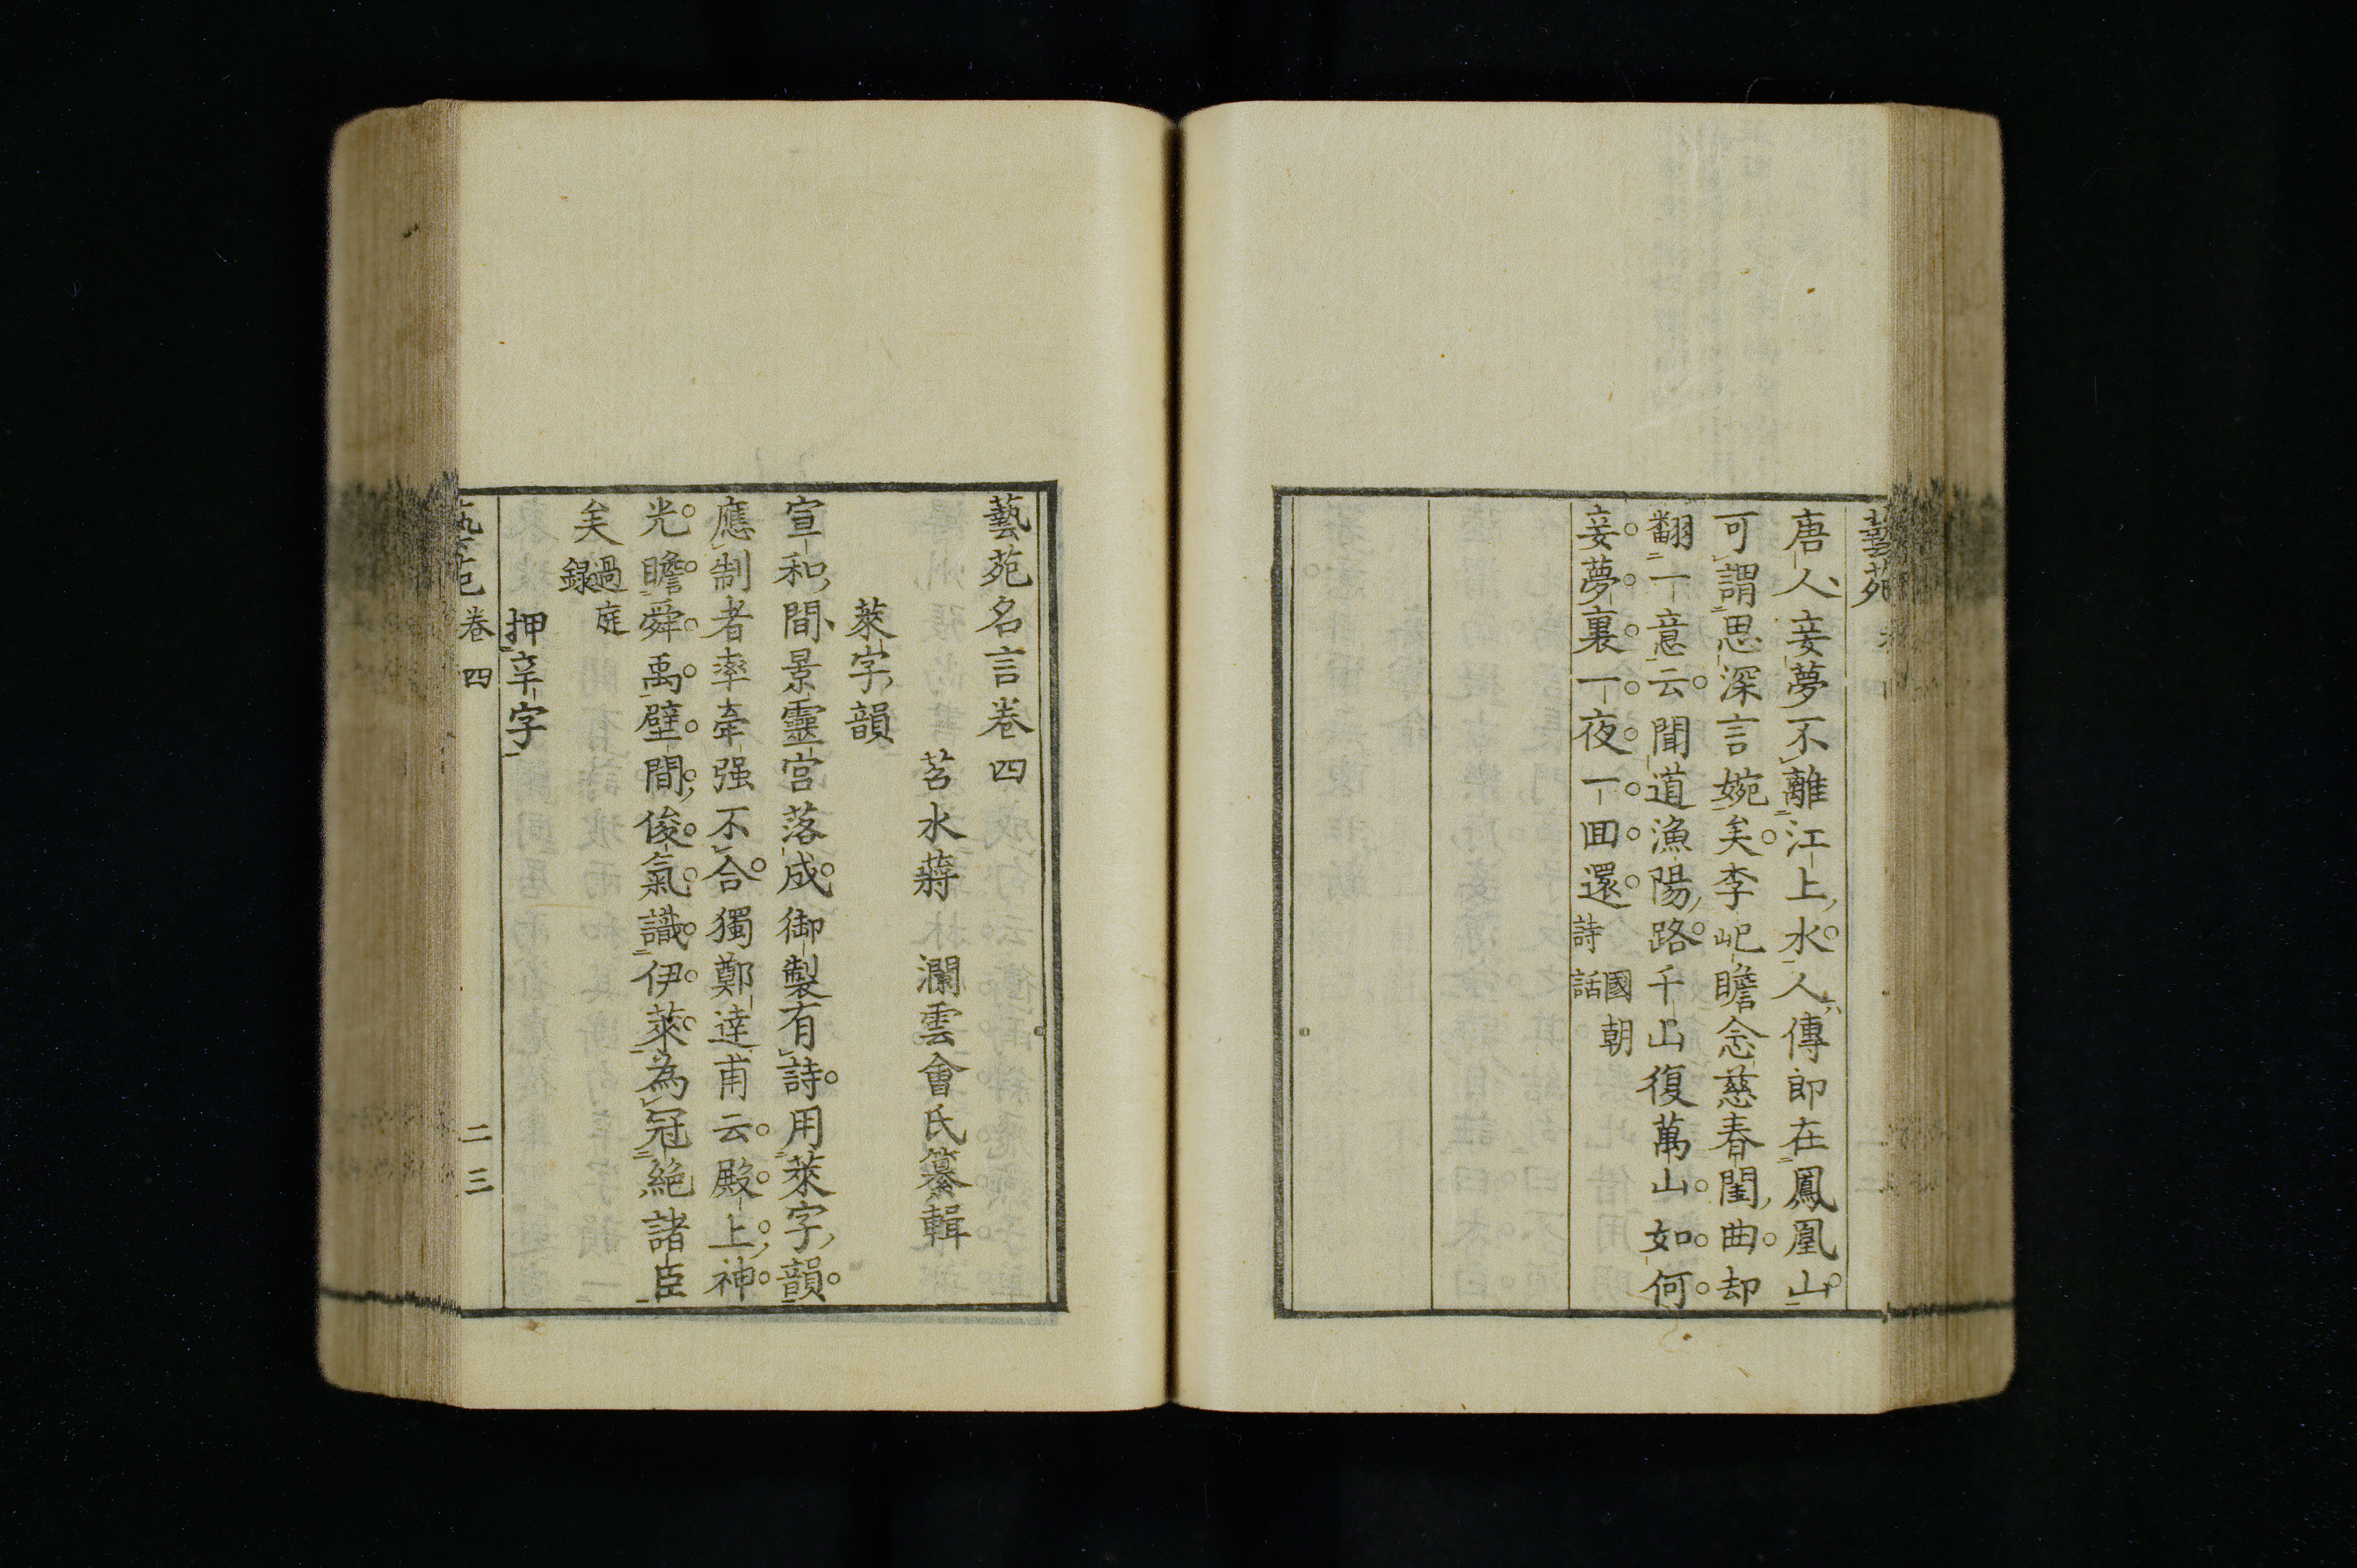 藝苑
唐人妾夢不離江上水人傳郎在鳳凰山
可謂思深言婉矣李屺瞻念慈春閨曲却
翻一意云聞道漁陽路千山復萬山如何
妾夢裏一夜一回還 國朝詩話
藝苑名言卷四
苕水蔣瀾雲會氏纂輯
萊字韻
宣和間景靈宮落成御製有詩用萊字韻
應制者率牽强不合獨鄭達甫云殿上神
光瞻舜禹壁間俊氣識伊萊為冠絶諸臣
矣 過庭録
押辛字
藝苑 卷四 二三